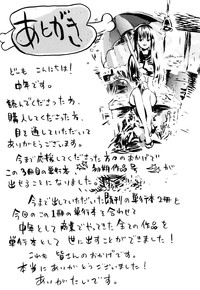 あとがき
どもこんにちは!
中年です。
読んでくださった方、
購入してくださった方、
目を通していただいて
ありがとうございます。
今まで応援してくださった方々のおかげで
この3冊目の単行本
出せることになりました。
今まで出していただいた既刊の単行本2冊と
今回のこの1冊の単行本を合わせて
中年として商業でやってきた全ての作品を
単行本として世に出すことができました!
これも皆さんのおかげです。
本当にありがとうございました!
ありがたいです。